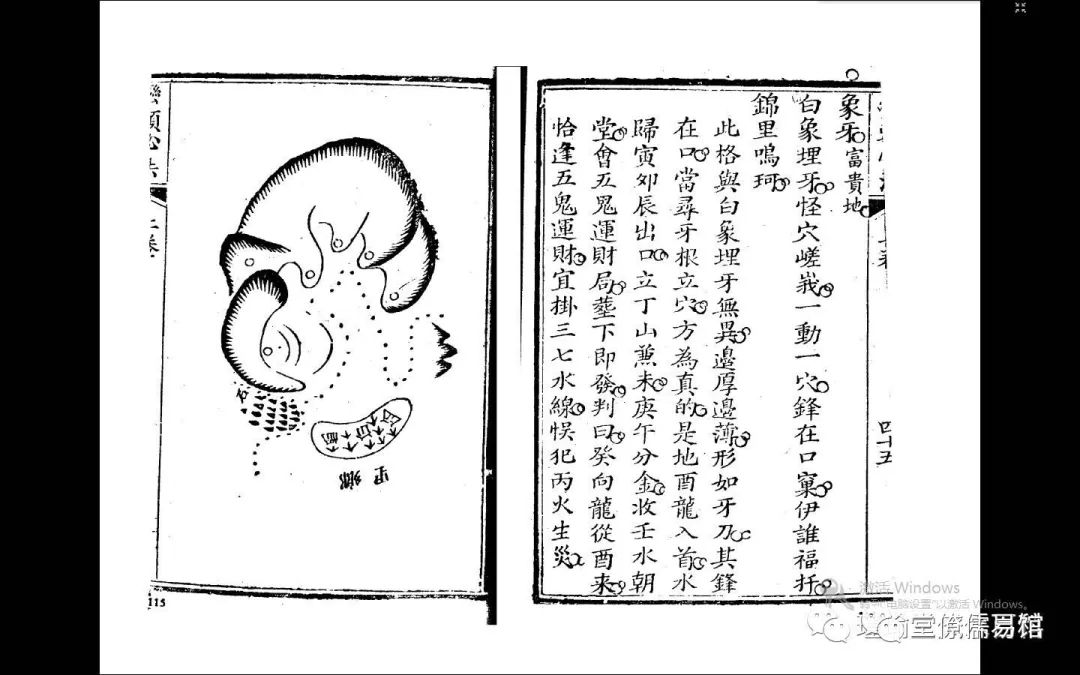 象牙富貴地
白象埋牙怪穴嵯峩一動一穴鋒在口窠伊誰福扦
錦里鳴珂
此格與白象埋牙無異邊厚邊薄形如牙乃其鋒
在口當尋牙根立穴方為真的是地酉龍入首水
歸寅夘辰出口立丁山兼未庚午分金收壬水朝
堂會五鬼運財局塟下即發判曰癸向龍從酉来
恰逢五鬼運財宜掛三七水線悞犯丙火生災
四十五
石
鄉里
115
激活 Windows
电脑设置"以激活 Windows。